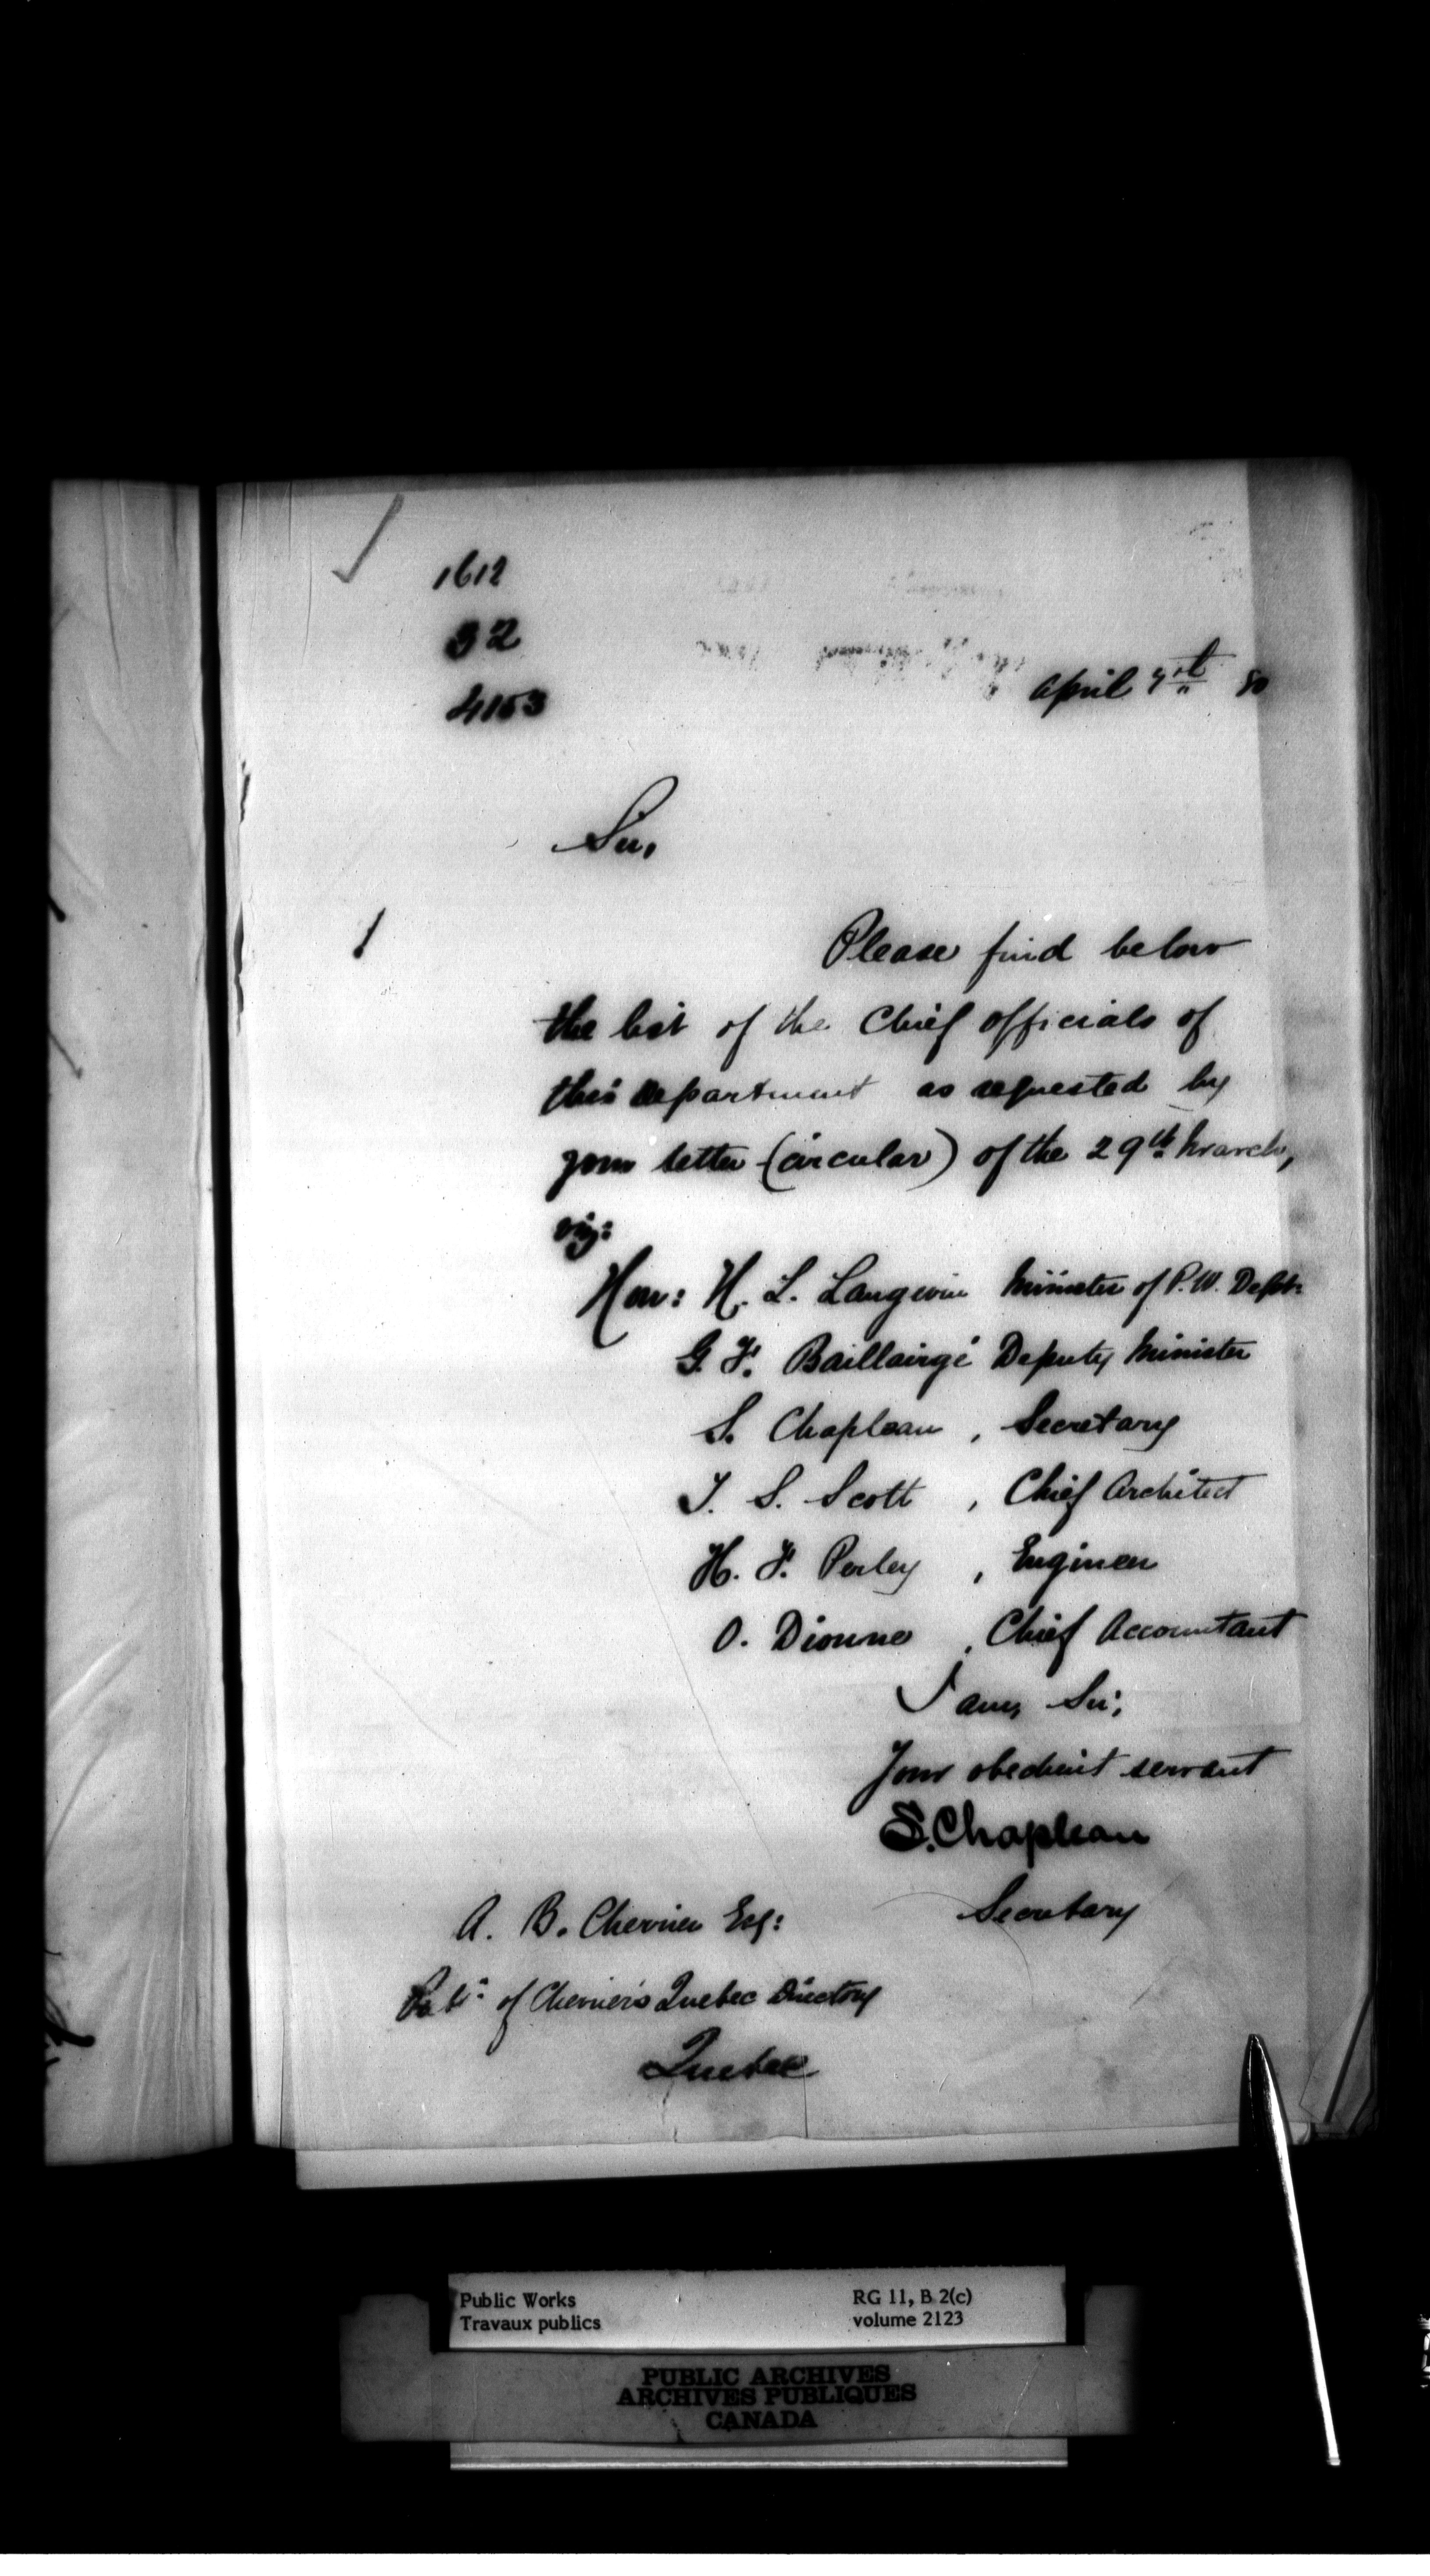 1612
32
4153
April 7th 80
Sir,
1
Please find below
the list of the Chief officials of
this Department as requested by
your letter (circular) of the 29th March,
viz:
Hon: H. L. Langevin Minister of P.W. Dept:
G. F. Baillairgé Deputy Minister
S. Chapleau , Secretary
T. S. Scott , Chief Architect
H. F. Perley , Engineer
O. Dionne , Chief Accountant
I am, Sir,
Your obedient servant
S. Chapleau
Secretary
A. B. Cherrier Esq:
of Cherrier's Quebec Directory
Quebec
Public Works RG 11, B 2(c)
Travaux publics volume 2123
PUBLIC ARCHIVES
ARCHIVES PUBLIQUES
CANADA